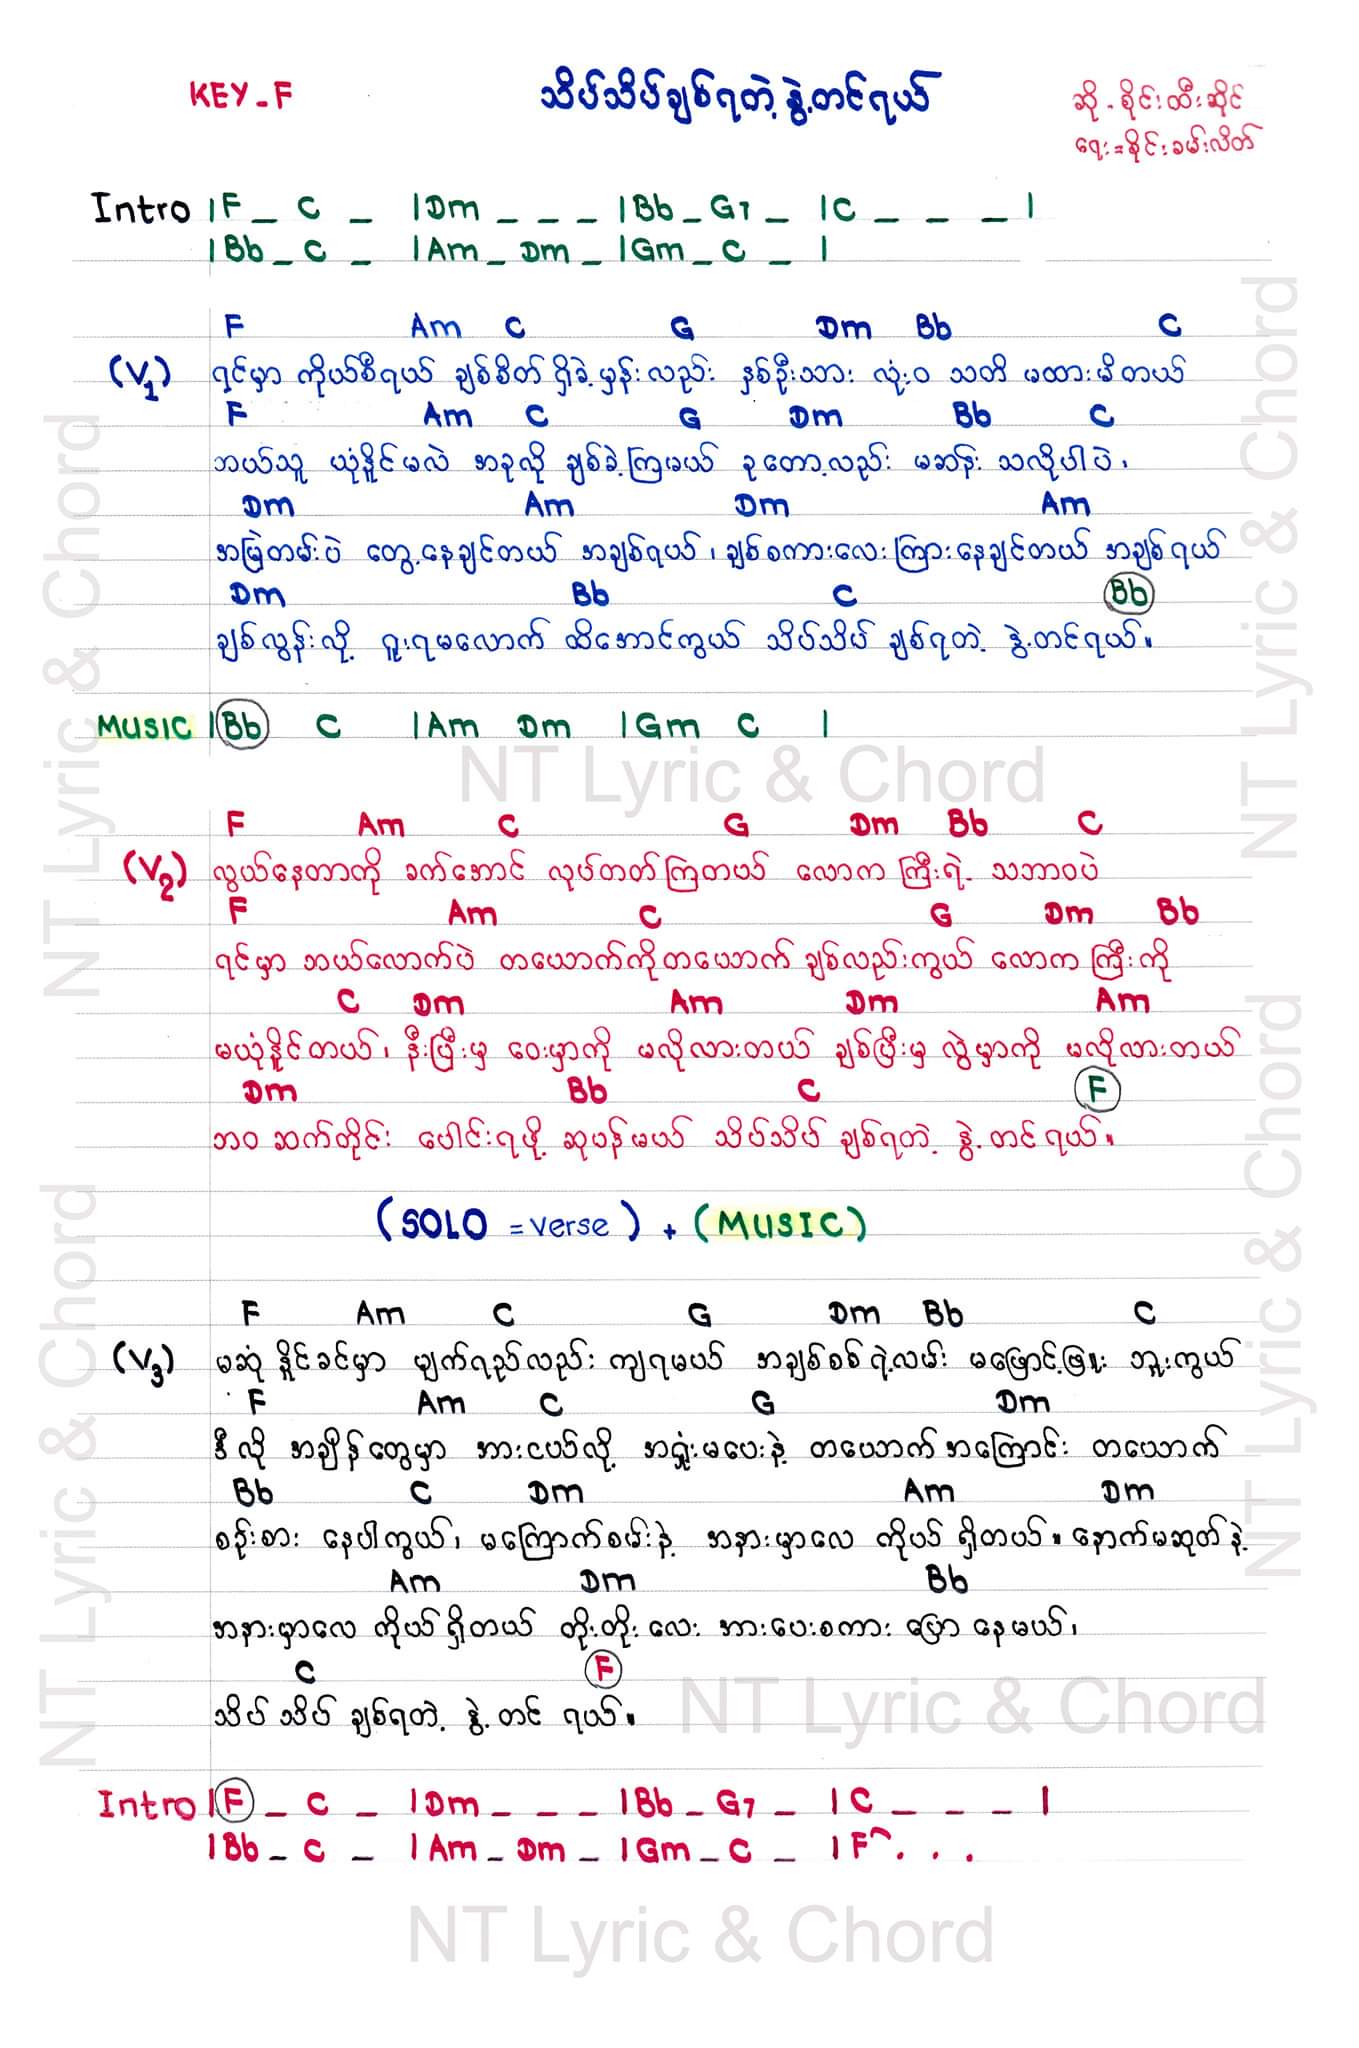 KEY-F
သိပ်သိပ်ချစ်ရတဲ့ နွဲ့တင်ရယ်
ဆို - စိုင်းထီးဆိုင်
ရေး = စိုင်းခမ်းလိတ်
Intro |F _ C _ |Dm _ _ _ |Bb _ G7 _ |C _ _ _ |
|Bb _ C _ |Am _ Dm _ |Gm _ C _ |
F Am C G Dm Bb C
(V1) ရှင်မှာ ကိုယ်စီရယ် ချစ်စိတ် ရှိခဲ့မှန်းလည်း နှစ်ဦးသား လုံးဝ သတိ မထားမိတယ်
F Am C G Dm Bb C
ဘယ်သူ ယုံနိူင်မလဲ အခုလို ချစ်ခဲ့ကြမယ် ခုတော့လည်း မဆန်း သလိုပါပဲ၊
Dm Am Dm Am
အမြဲတမ်းပဲ တွေ့နေချင်တယ် အချစ်ရယ်၊ ချစ်စကားလေးကြားနေချင်တယ် အချစ်ရယ်
Dm Bb C Bb
ချစ်လွန်းလို့ ရူးရမလောက် ထိအောင်ကွယ် သိပ်သိပ် ချစ်ရတဲ့ နွဲ့တင်ရယ်။
MUSIC |Bb C |Am Dm |Gm C |
NT Lyric & Chord
F Am C G Dm Bb C
(V2) လွယ်နေတာကို ခက်အောင် လုပ်တတ်ကြတယ် လောကကြီးရဲ့ သဘာဝပဲ
F Am C G Dm Bb
ရင်မှာ ဘယ်လောက်ပဲ တယောက်ကိုတယောက် ချစ်လည်းကွယ် လောကကြီးကို
C Dm Am Dm Am
မယုံနိူင်တယ်၊ နီးပြီးမှ ဝေးမှာကို မလိုလားတယ် ချစ်ပြီးမှ လွဲမှာကို မလိုလားတယ်
Dm Bb C F
ဘဝ ဆက်တိုင်း ပေါင်းရဖို့ ဆုပန်မယ် သိပ်သိပ် ချစ်ရတဲ့ နွဲ့တင်ရယ်။
(SOLO = Verse) + (MUSIC)
F Am C G Dm Bb C
(V3) မဆုံ နိူင်ခင်မှာ မျက်ရည်လည်း ကျရမယ် အချစ်စစ်ရဲ့လမ်း မဖြောင့်ဖြူး ဘူးကွယ်
F Am C G Dm
ဒီလို အချိန်တွေမှာ အားငယ်လို့ အရှုံးမပေးနဲ့ တယောက်အကြောင်း တယောက်
Bb C Dm Am Dm
စဉ်းစား နေပါကွယ်၊ မကြောက်စမ်းနဲ့ အနားမှာလေ ကိုယ် ရှိတယ်။ နောက်မဆုတ်နဲ့
Am Dm Bb
အနားမှာလေ ကိုယ်ရှိတယ် တိုးတိုး လေး အားပေးစကား ပြော နေမယ်၊
C F
သိပ် သိပ် ချစ်ရတဲ့ နွဲ့တင် ရယ်။
NT Lyric & Chord
Intro |F _ C _ |Dm _ _ _ |Bb _ G7 _ |C _ _ _ |
|Bb _ C _ |Am _ Dm _ |Gm _ C _ |F . . .
NT Lyric & Chord
NT Lyric & Chord
NT Lyric & Chord
NT Lyric & Chord
NT Lyric & Chord